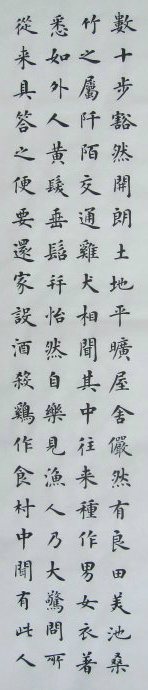 數十步豁然開朗土地平曠屋舍儼然有良田美池桑
竹之屬阡陌交通雞犬相聞其中往来種作男女衣著
悉如外人黃髮垂髫幷怡然自樂見漁人乃大驚問所
從来具答之便要還家設酒殺鷄作食村中聞有此人